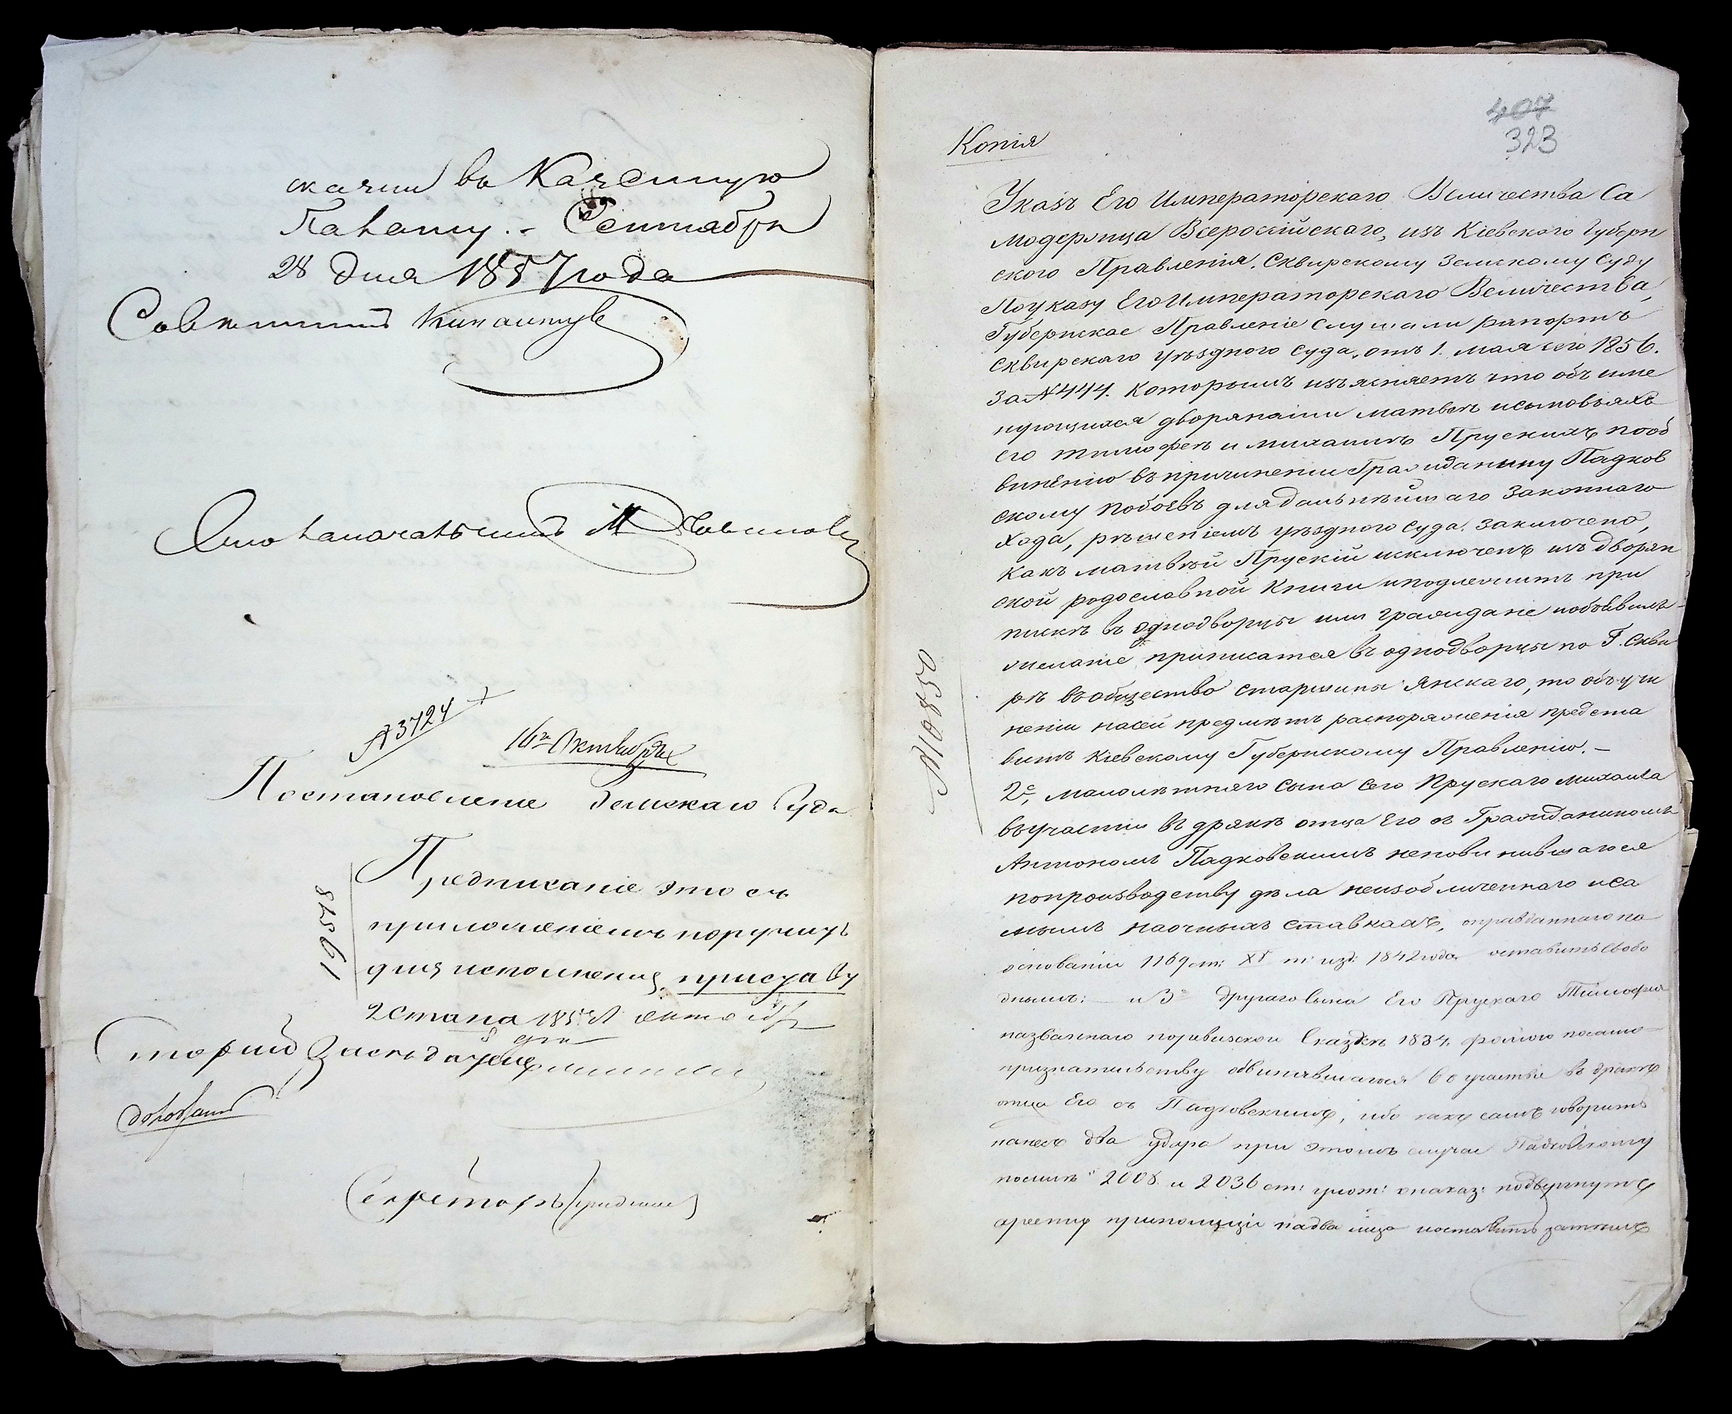 скачии въ Казенную
Палату. - Сентября
28 дня 1857 года
Советникъ
Столоначальникъ М
№ 3724
16го Октября
Постановление Земскаго Суда
Предписание это съ
приложениемъ поручить
для исполнения приставу
2 стана 1857 октября
8 дня
19578
Секретарь
407
323
Копія
Указъ Его Императорскаго Величества Са
модержца Всероссійскаго, изъ Кіевскаго Губерн
скаго Правленія. Сквирскому Земскому Суду
По указу Его Императорскаго Величества,
Губернское Правленіе слушали рапортъ
Сквирскаго уѣзднаго суда, отъ 1. мая сего 1856.
за № 444. которымъ изъясняетъ что объ име
нующихся дворянами матвеѣ и сыновьяхъ
его тимофеѣ и михаилѣ Прускихъ по об
винѣнію въ причиненіи Гражданину Падков
скому побоевъ для дальнѣйшаго законнаго
хода, рѣшеніемъ уѣзднаго суда. заключено,
какъ матвѣй Прускій исключенъ изъ дворян
ской родословной книги и подлежитъ при
пискѣ въ однодворцы или граждане и объявилъ
желаніе приписатся въ однодворцы по Г.Скви
рѣ въ общество старшины Янскаго, то объ учи
неніи на сей предмѣтъ распоряженія предста
вить Кіевскому Губернскому Правленію. —
2е, малолѣтняго сына сего Прускаго михаила
въ участіи въ дракѣ отца Его съ Гражданиномъ
Антономъ Падковскимъ неповинившагося
по производству дѣла неизобличеннаго и са
мымъ на очныхъ ставкахъ, оправданнаго на
основаніи 1169 ст: XV т: изд: 1842 года оставить свобо
днымъ: — и 3е другаго сына Его Прускаго Тимофея
названнаго по ревизской сказкѣ 1834.
признательству обвинявшагося во участіе въ дракѣ
отца Его съ Падковскимъ, ибо какъ самъ говоритъ
нанесъ два удара при этомъ случае Падковскому
2008 и 2036 ст: улож: о наказ: подвергнуть
аресту при полиціи на два
№ 10850